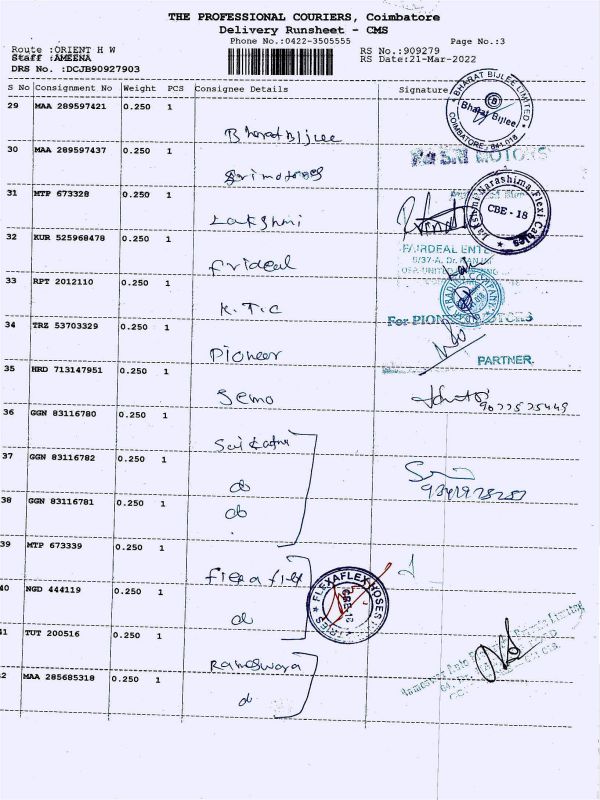 THE PROFESSIONAL COURIERS, Coimbatore
Delivery Runsheet - CMS
Phone No.:0422-3505555 Page No.:3
Route :ORIENT H W RS No.:909279
Staff :AMEENA RS Date:21-Mar-2022
DRS No. :DCJB90927903
S No Consignment No Weight PCS Consignee Details Signature
29 MAA 289597421 0.250 1
Bharat Bijlee
BHARAT BIJLEE LIMITED
Bharat Bijlee
COIMBATORE - 641 018
30 MAA 289597437 0.250 1
Srimotors
MOTORS
31 MTP 673328 0.250 1
Lakshmi
Lakshmi Narashima Flexi Cables
CBE - 18
32 KUR 525968478 0.250 1
frideal
FAIRDEAL ENTE
33 RPT 2012110 0.250 1
K.T.C
COMPANY
34 TRZ 53703329 0.250 1
Pioneer
For PIONEER MOTORS
PARTNER.
35 HRD 713147951 0.250 1
Semo
36 GGN 83116780 0.250 1
37 GGN 83116782 0.250 1
do
38 GGN 83116781 0.250 1
do
39 MTP 673339 0.250 1
flexa flex
FLEXAFLEX HOSES
CBE-18
40 NGD 444119 0.250 1
do
41 TUT 200516 0.250 1
Rameswara
Private Limited
42 MAA 285685318 0.250 1
do